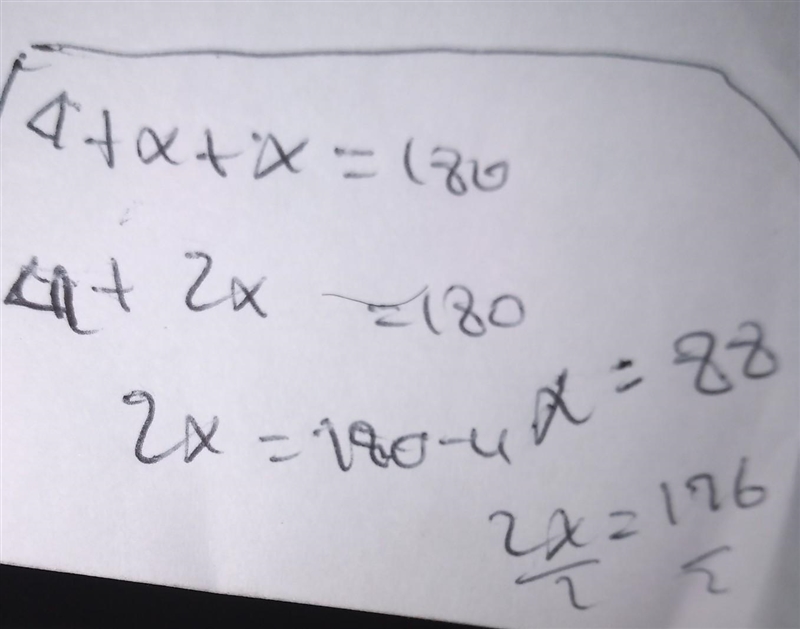 4+x+x=180
4+2x =180
2x=180-4
x=88
2x=176
2 2